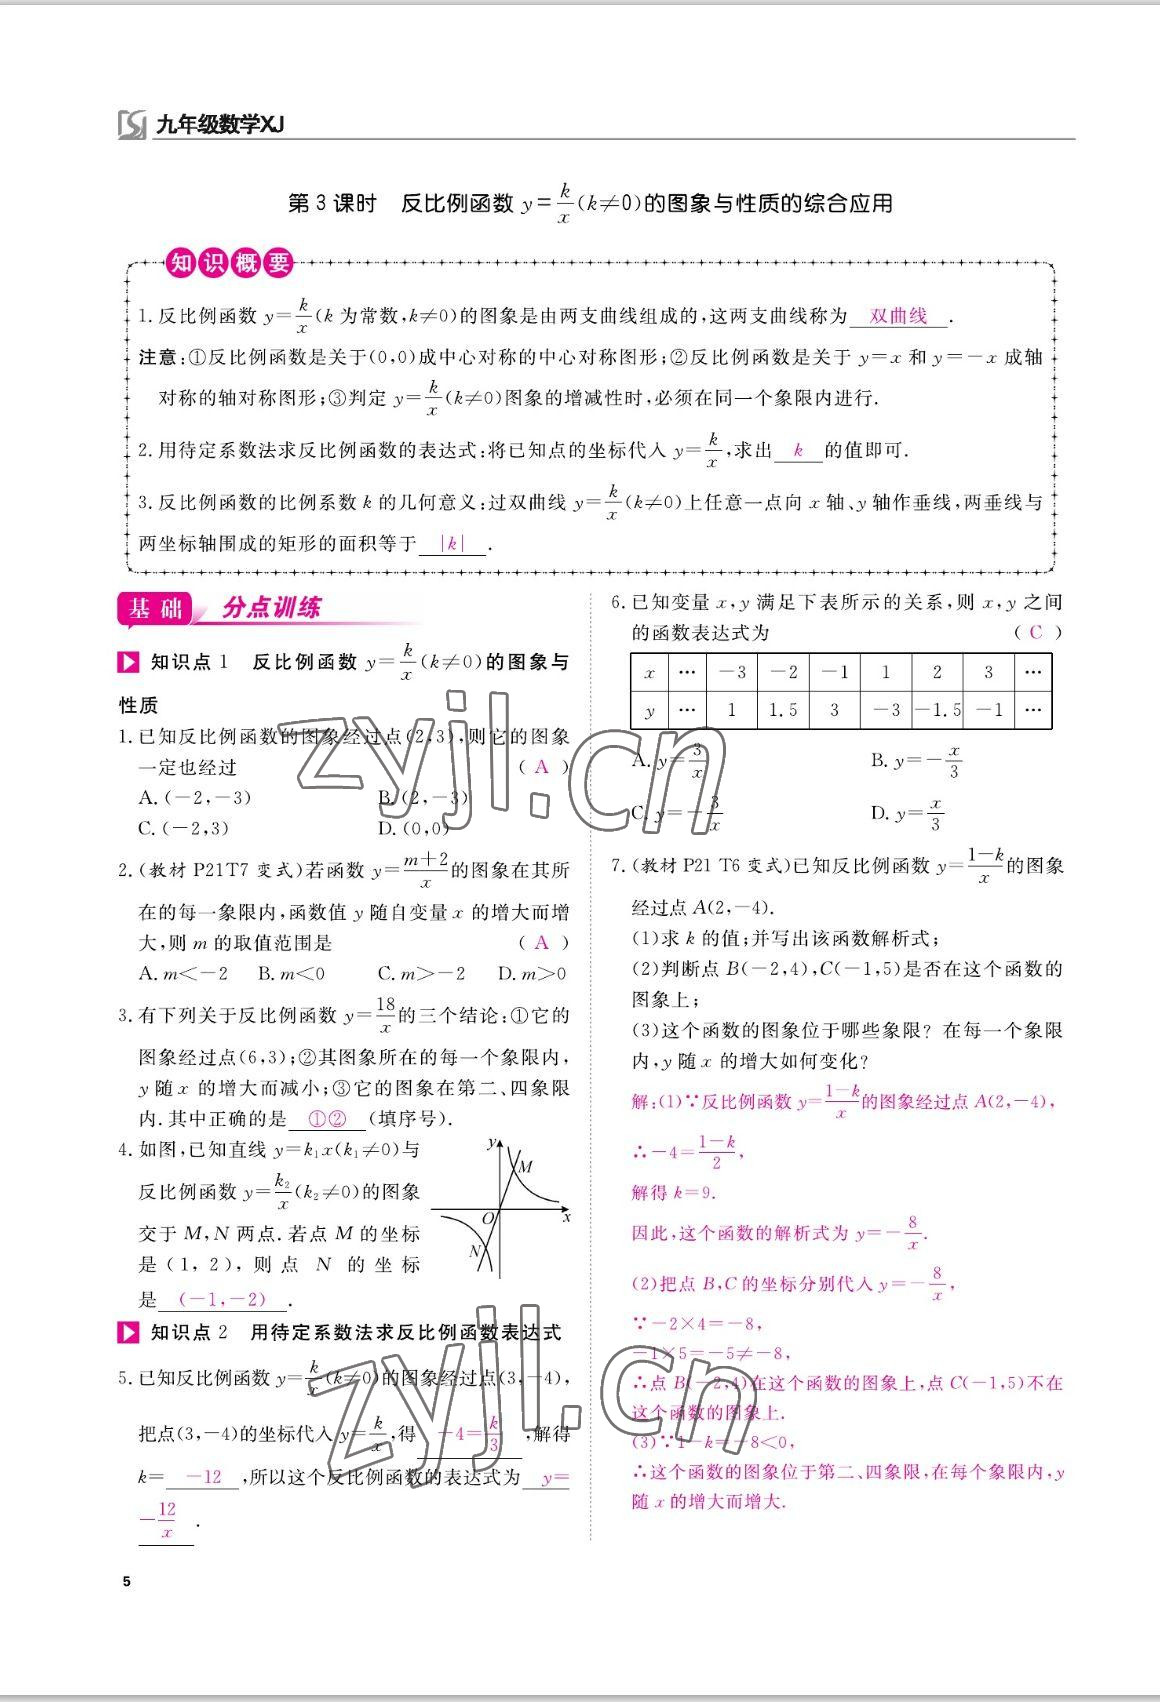 九年级数学XJ
第3课时 反比例函数 y=k/x(k≠0)的图象与性质的综合应用
知识概要
1.反比例函数 y=k/x(k 为常数,k≠0)的图象是由两支曲线组成的,这两支曲线称为 双曲线 .
注意:①反比例函数是关于(0,0)成中心对称的中心对称图形;②反比例函数是关于 y=x 和 y=-x 成轴
对称的轴对称图形;③判定 y=k/x(k≠0)图象的增减性时,必须在同一个象限内进行.
2.用待定系数法求反比例函数的表达式:将已知点的坐标代入 y=k/x,求出 k 的值即可.
3.反比例函数的比例系数 k 的几何意义:过双曲线 y=k/x(k≠0)上任意一点向 x 轴、y 轴作垂线,两垂线与
两坐标轴围成的矩形的面积等于 |k| .
基础 分点训练
知识点1 反比例函数 y=k/x(k≠0)的图象与
性质
1.已知反比例函数的图象经过点(2,3),则它的图象
一定也经过 ( A )
A.(-2,-3) B.(2,-3)
C.(-2,3) D.(0,0)
2.(教材 P21T7 变式)若函数 y=m+2/x的图象在其所
在的每一象限内,函数值 y 随自变量 x 的增大而增
大,则 m 的取值范围是 ( A )
A.m<-2 B.m<0 C.m>-2 D.m>0
3.有下列关于反比例函数 y=18/x的三个结论:①它的
图象经过点(6,3);②其图象所在的每一个象限内,
y 随 x 的增大而减小;③它的图象在第二、四象限
内.其中正确的是 ①② (填序号).
4.如图,已知直线 y=k₁x(k₁≠0)与
反比例函数 y=k₂/x(k₂≠0)的图象
交于 M,N 两点.若点 M 的坐标
是(1,2),则点 N 的坐标
是 (-1,-2) .
y
M
O
x
N
知识点2 用待定系数法求反比例函数表达式
5.已知反比例函数 y=k/x(k≠0)的图象经过点(3,-4),
把点(3,-4)的坐标代入 y=k/x,得 -4=k/3 ,解得
k= -12 ,所以这个反比例函数的表达式为 y=
-12/x .
6.已知变量 x,y 满足下表所示的关系,则 x,y 之间
的函数表达式为 ( C )
x … -3 -2 -1 1 2 3 …
y … 1 1.5 3 -3 -1.5 -1 …
A.y=3/x B.y=-x/3
C.y=-3/x D.y=x/3
7.(教材 P21 T6 变式)已知反比例函数 y=1-k/x的图象
经过点 A(2,-4).
(1)求 k 的值;并写出该函数解析式;
(2)判断点 B(-2,4),C(-1,5)是否在这个函数的
图象上;
(3)这个函数的图象位于哪些象限?在每一个象限
内,y 随 x 的增大如何变化?
解:(1)∵反比例函数 y=1-k/x的图象经过点 A(2,-4),
∴-4=1-k/2,
解得 k=9.
因此,这个函数的解析式为 y=-8/x.
(2)把点 B,C 的坐标分别代入 y=-8/x,
∵-2×4=-8,
-1×5=-5≠-8,
∴点 B(-2,4)在这个函数的图象上,点 C(-1,5)不在
这个函数的图象上.
(3)∵1-k=-8<0,
∴这个函数的图象位于第二、四象限,在每个象限内,y
随 x 的增大而增大.
zyjl.cn
zyjl.cn
5